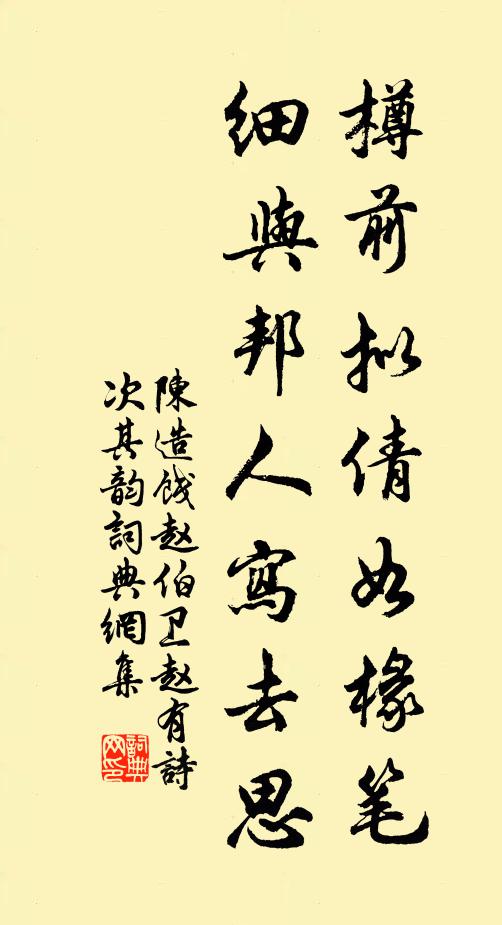 樽前拟倩如椽笔
細與邦人寫去思
陳造餞赵伯卫赵有詩
次其韵詞典網集
詞典
网印